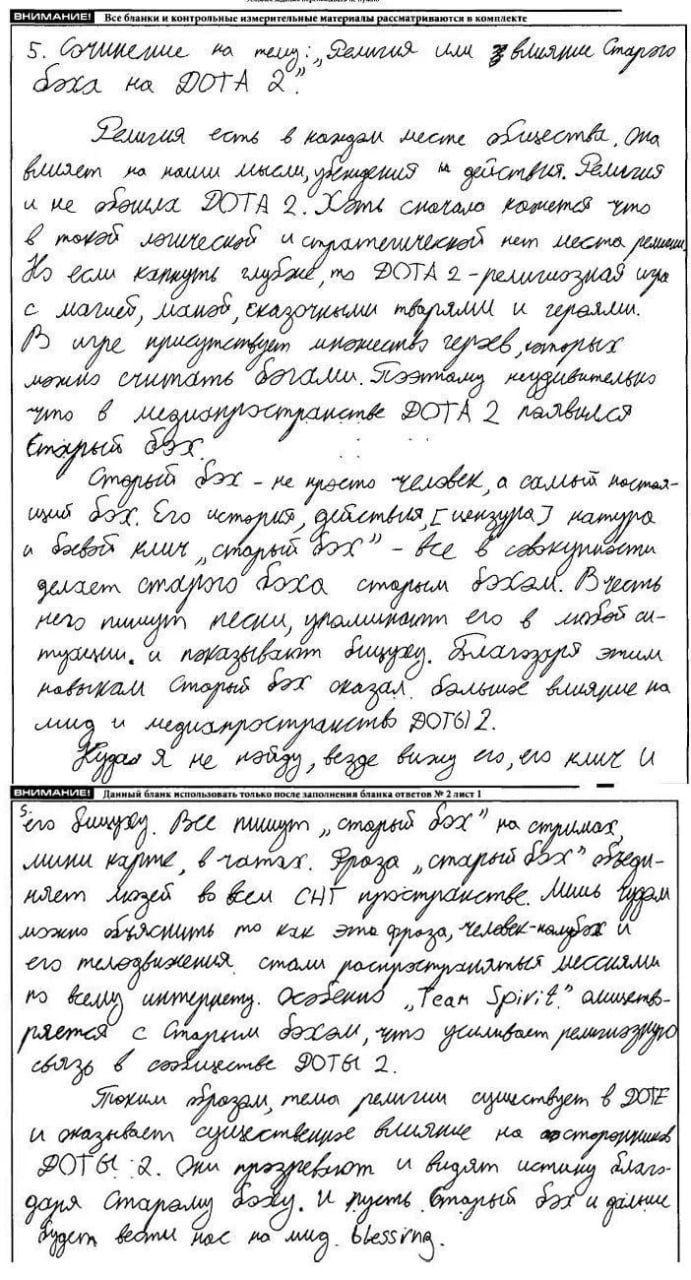 ВНИМАНИЕ! Все бланки и контрольные измерительные материалы рассматриваются в комплекте
5. Сочинение на тему: „Религия или влияние Старого
бэха на DOTA 2."
Религия есть в каждом месте общества. Она
влияет на наши мысли, убеждения и действия. Религия
и не обошла DOTA 2. Хоть сначало кажется что
в такой логической и стратегической нет места религии.
Но если капнуть глубже, то DOTA 2 - религиозная игра
с магией, маной, сказочными тварями и героями.
В игре присутствует множество героев, которых
можно считать богами. Поэтому неудивительно
что в медиапространстве DOTA 2 появился
Старый бэх.
Старый бэх - не просто человек, а самый настоя-
щий бэх. Его история, действия, [цензура] натура
и боевой клич „старый бэх" - все в совокупности
делает старого бэха старым бэхэм. В честь
него пишут песни, упоминают его в любой си-
туации. и показывают бицуху. Благодаря этим
навыкам Старый бэх оказал большое влияние на
мид и медиапространство DOTЫ 2.
Куда я не пойду, везде вижу его, его клич и
ВНИМАНИЕ! Данный бланк использовать только после заполнения бланка ответов № 2 лист 1
5.
его бицуху. Все пишут „старый бэх" на стримах,
мини карте, в чатах. Фраза „старый бэх" объеди-
няет людей во всем СНГ пространстве. Лишь чудом
можно объяснить то как эта фраза, человек-полубэх и
его телодвижения стали распространяться мессиями
по всему интернету. Особенно „Team Spirit"
ряется с Старым бэхэм, что усиливает религиозную
связь в сообществе DOTЫ 2.
Таким образом, тема религии существует в DOTE
и оказывает существенное влияние на сторонников
DOTЫ 2. Они прозревают и видят истину благо-
даря Старому бэху. И пусть Старый бэх и дальше
будет вести нас на мид. blessing.